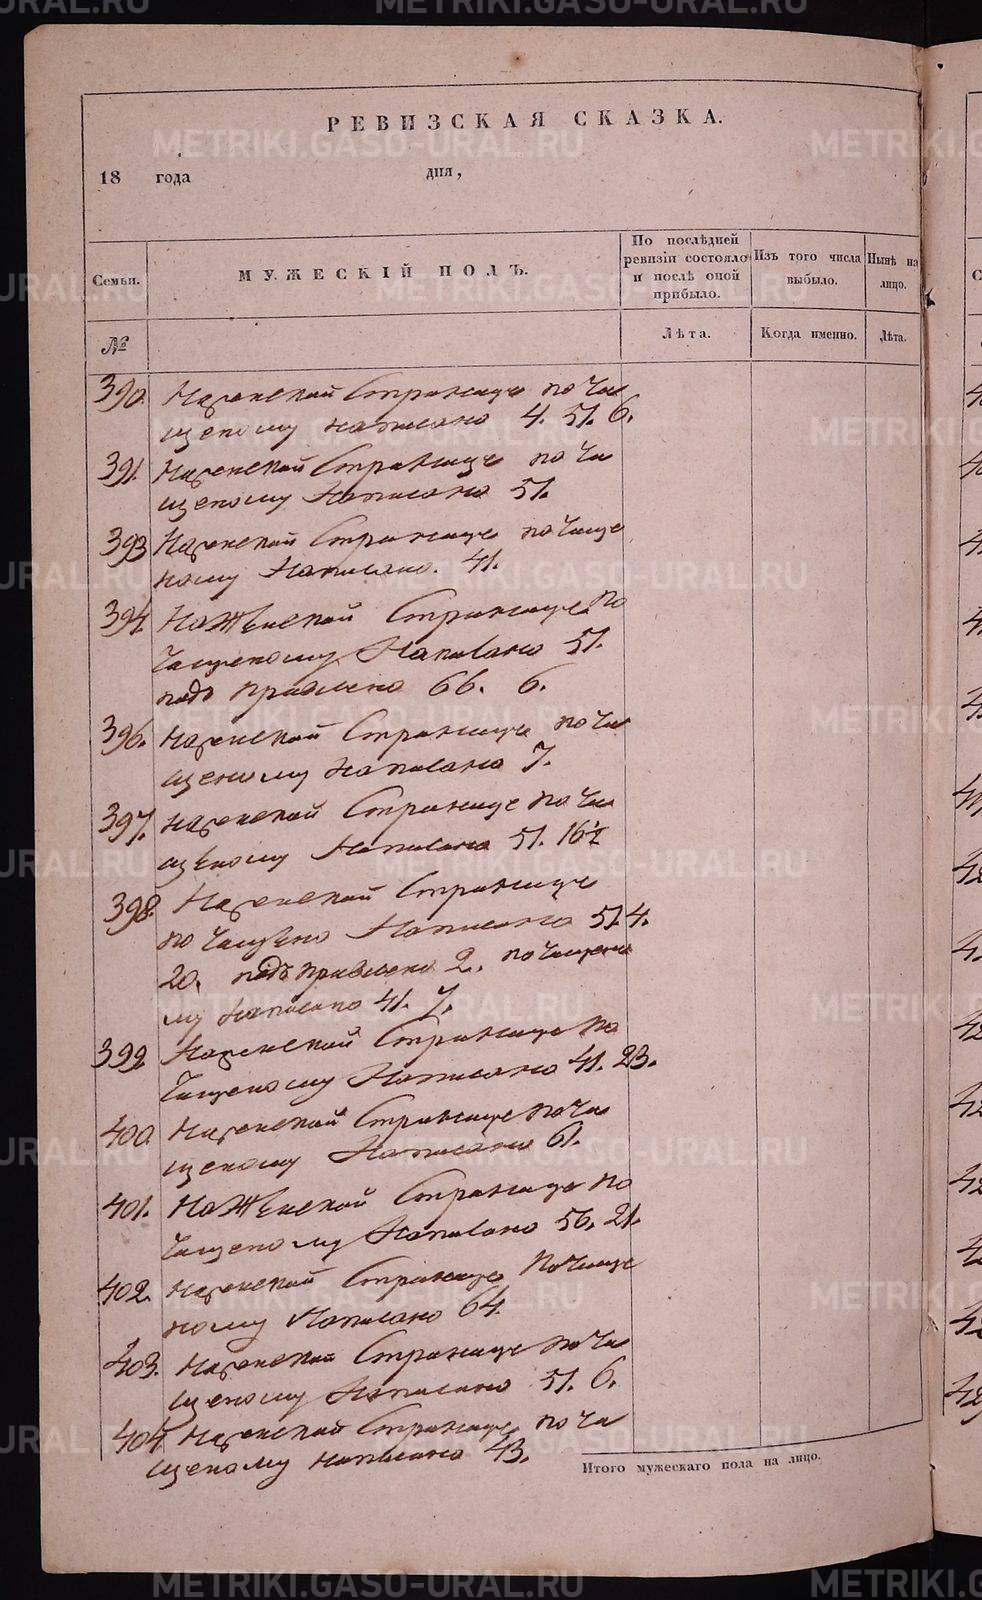 РЕВИЗСКАЯ СКАЗКА.
18 года дня,
Семьи.
МУЖЕСКІЙ ПОЛЪ.
По послѣдней ревизіи состояло и послѣ оной прибыло.
Изъ того числа выбыло.
Нынѣ на лицо.
№
Лѣта.
Когда именно.
Лѣта.
390. На женской Странице по чи
щеному написано 4. 51. 6.
391. На женской Странице по чи
щеному Написано 51.
393 На женской Странице по чище
ному Написано. 41.
394. На Женской Странице по
чищеному Написано 51.
подъ правлено 66. 6.
396. На женской Странице по чи
щеному написано 7.
397. на женской Странице по чи
щеному Написано 51. 16
398. На женской Странице
по чищено Написано 51. 4.
20. подъ правлено 2. по чищено
му написано 41. 7.
399. На женской Странице по
чищеному Написано 41. 23.
400. На женской Странице по чи
щеному Написано 61.
401. На Женской Странице по
чищеному Написано 56. 21.
402. На женской Странице По чище
ному Написано 64.
403. На женской Странице по чи
щеному Написано 51. 6.
404. На женской Странице по чи
щеному написано 43.
Итого мужескаго пола на лицо.
METRIKI.GASO-URAL.RU